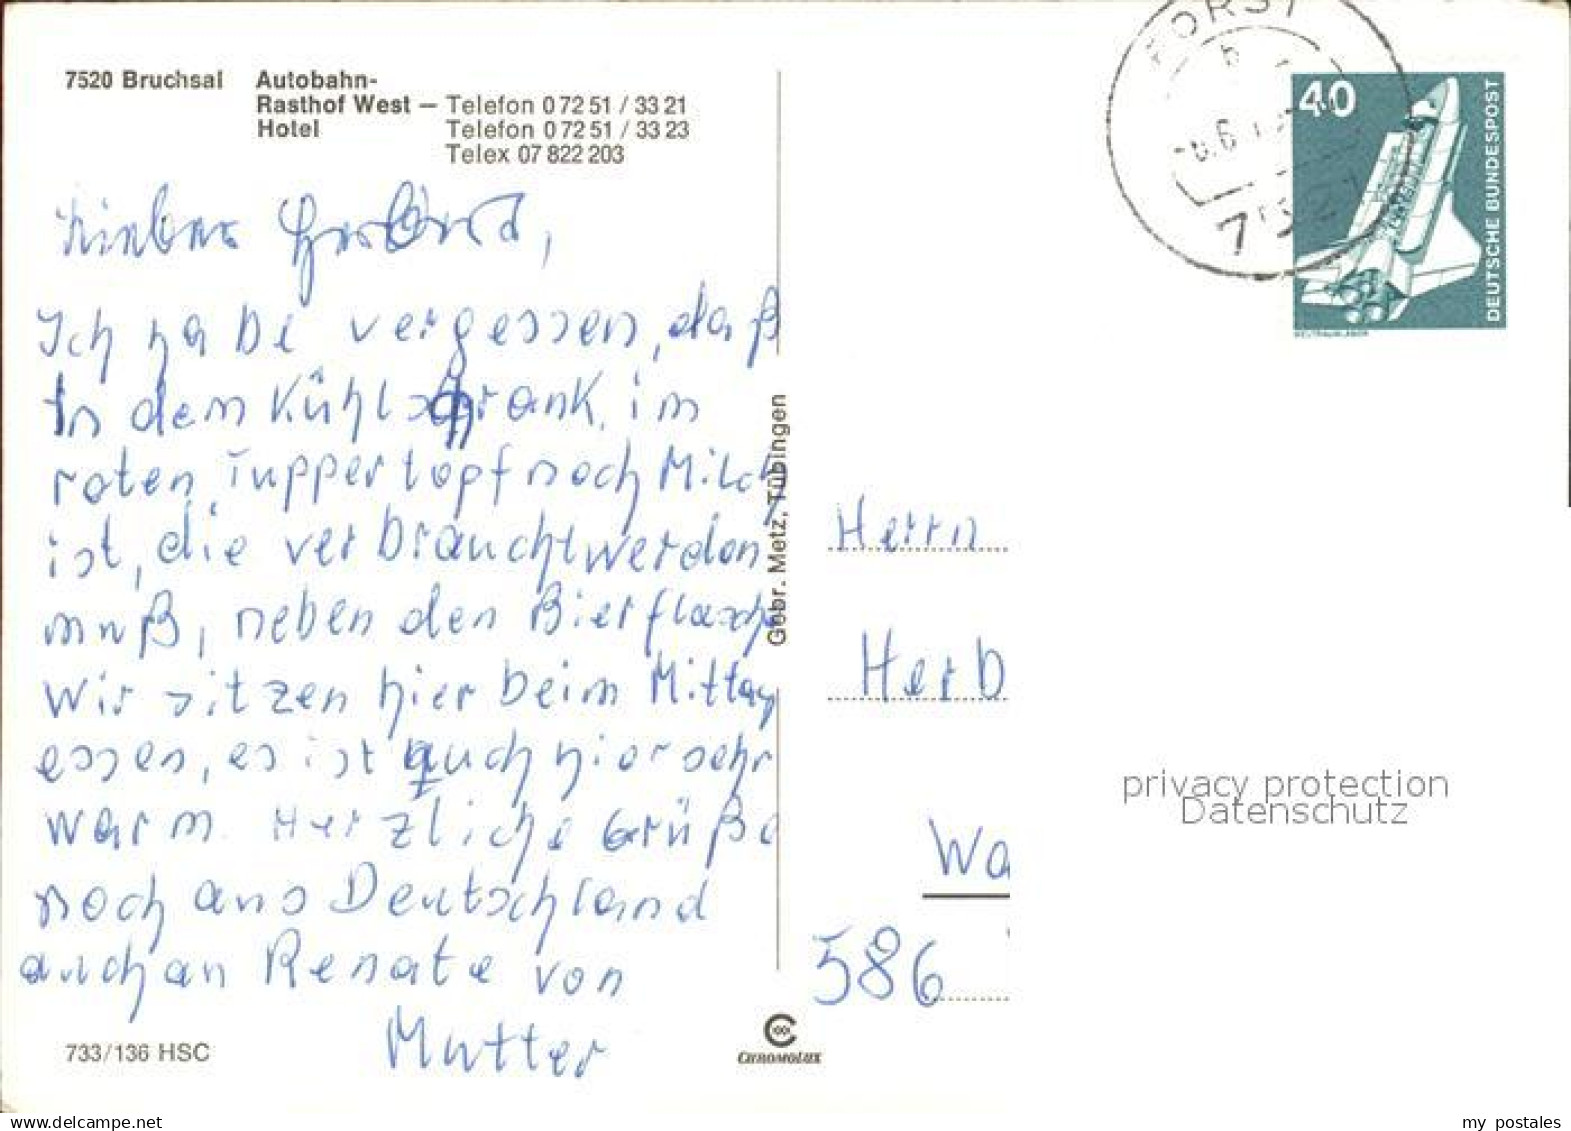 7520 Bruchsal Autobahn-
Rasthof West — Telefon 0 72 51 / 33 21
Hotel Telefon 0 72 51 / 33 23
Telex 07 822 203
Lieber
Ich habe vergessen, daß
in dem Kühlschrank, im
roten Tuppertopf noch Milch
ist, die verbraucht werden
muß, neben den Bierflasche
Wir sitzen hier beim Mittag
essen, es ist auch hier sehr
warm. Herzliche Grüße
noch aus Deutschland
auch an Renate von
Mutter
733/136 HSC
Gebr. Metz, Tübingen
CHROMOLUX
FORST
40
DEUTSCHE BUNDESPOST
Herrn
Herb
Wa
586
privacy protection
Datenschutz
www.delcampe.net
my_postales